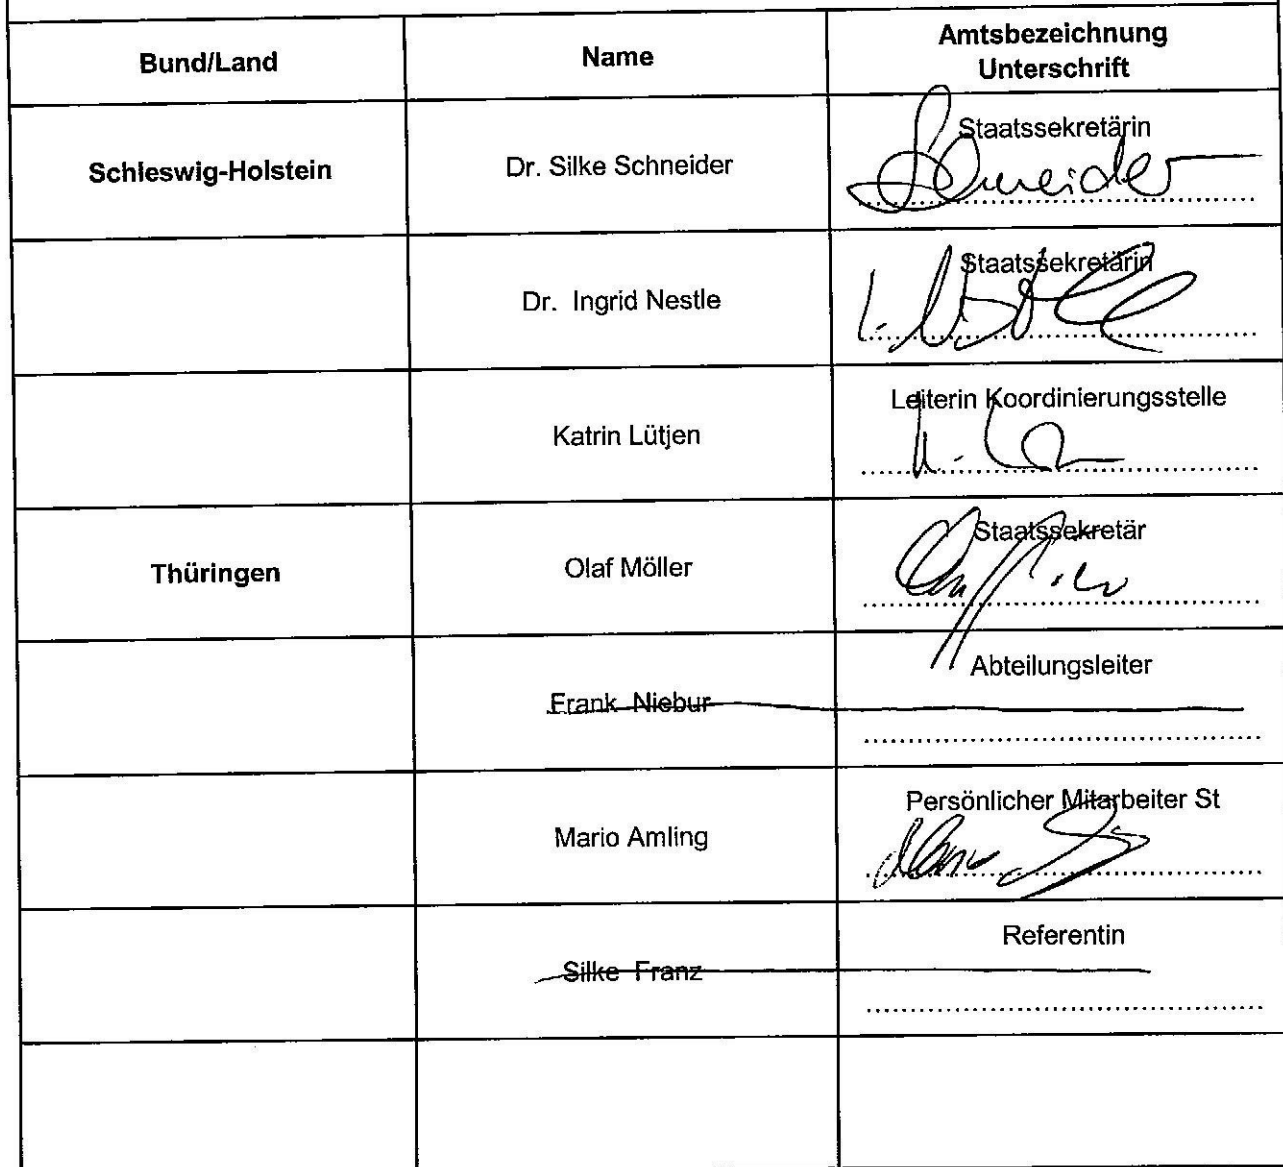 Bund/Land
Name
Amtsbezeichnung
Unterschrift
Schleswig-Holstein
Dr. Silke Schneider
Staatssekretärin
Schneider
Dr. Ingrid Nestle
Staatssekretärin
Katrin Lütjen
Leiterin Koordinierungsstelle
Thüringen
Olaf Möller
Staatssekretär
Frank Niebur
Abteilungsleiter
Mario Amling
Persönlicher Mitarbeiter St
Silke Franz
Referentin